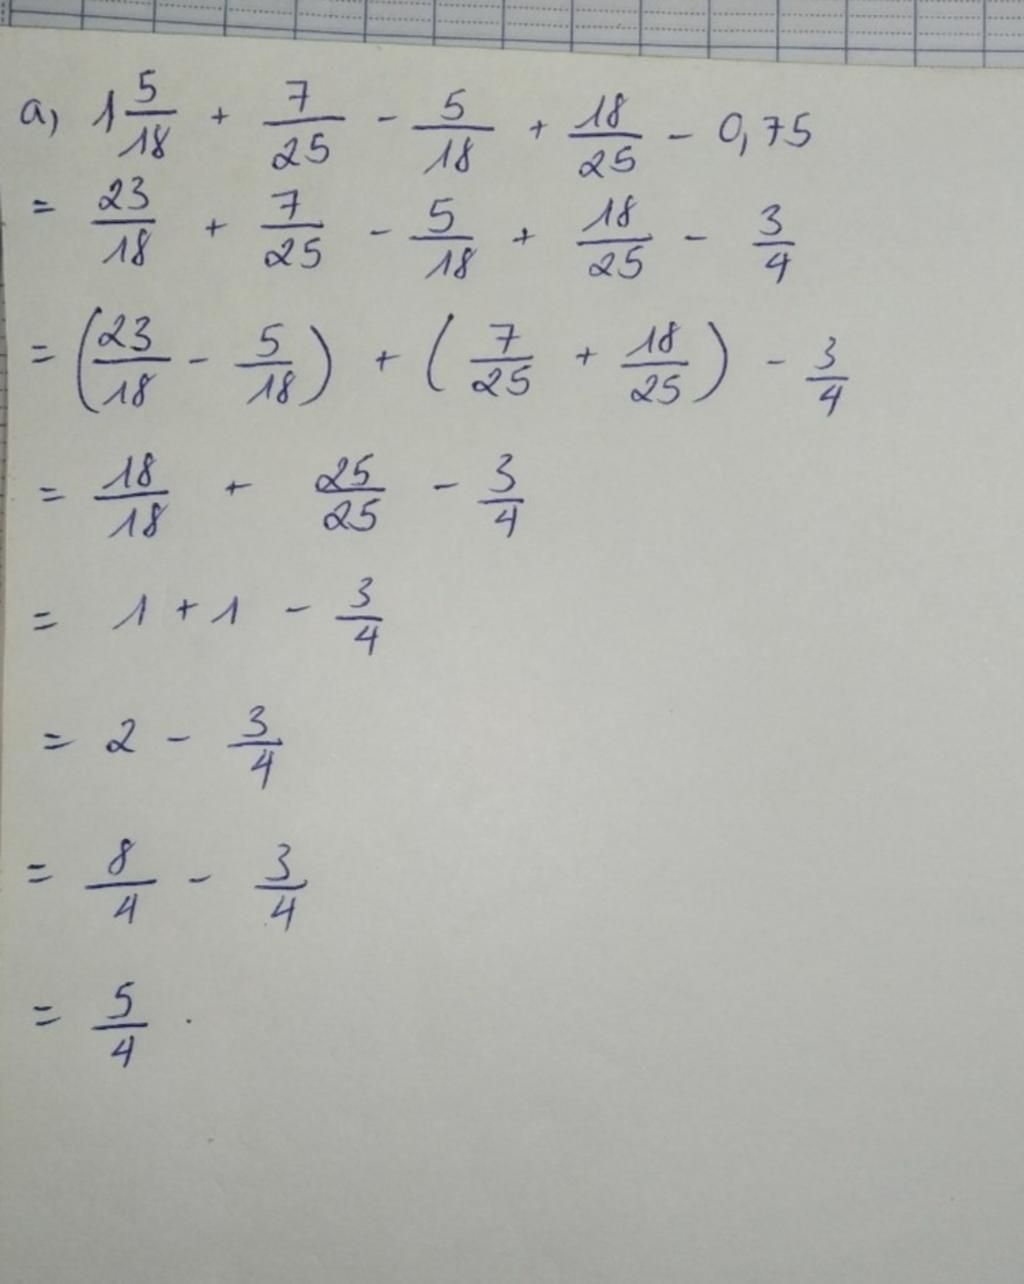 a, 1 5/18 + 7/25 - 5/18 + 18/25 - 0,75
= 23/18 + 7/25 - 5/18 + 18/25 - 3/4
= (23/18 - 5/18) + (7/25 + 18/25) - 3/4
= 18/18 + 25/25 - 3/4
= 1 + 1 - 3/4
= 2 - 3/4
= 8/4 - 3/4
= 5/4 .